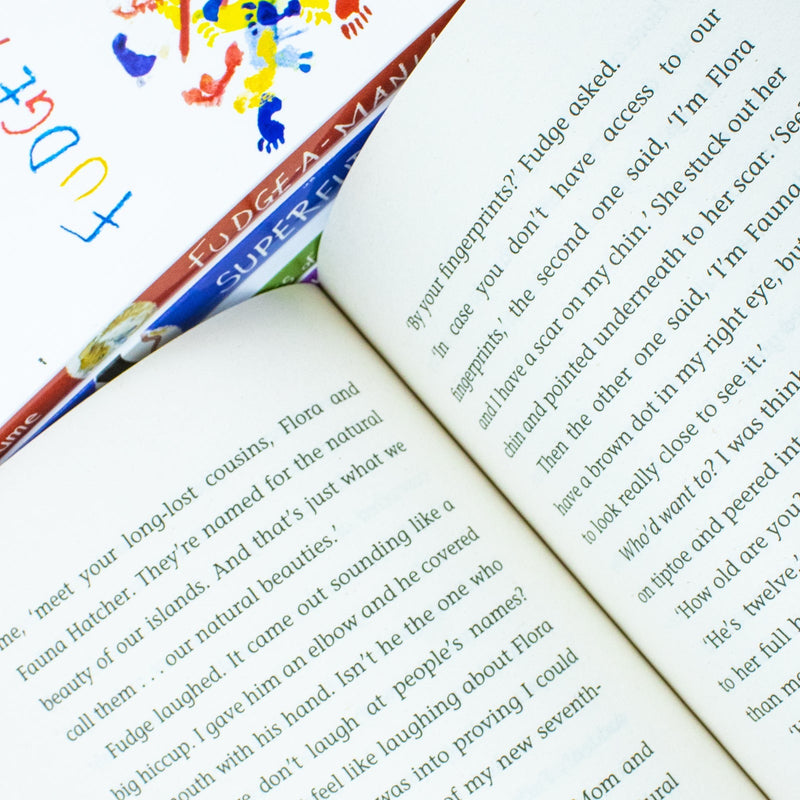 FUDGE
FUDGE-A-MANIA
SUPERFU
s of
ume
me, 'meet your long-lost cousins, Flora and
Fauna Hatcher. They're named for the natural
beauty of our islands. And that's just what we
call them . . . our natural beauties.'
Fudge laughed. It came out sounding like a
big hiccup. I gave him an elbow and he covered
outh with his hand. Isn't he the one who
e don't laugh at people's names?
feel like laughing about Flora
was into proving I could
of my new seventh-
Mom and
tural
'By your fingerprints?' Fudge asked.
'In case you don't have access to our
fingerprints,' the second one said, 'I'm Flora
and I have a scar on my chin.' She stuck out her
chin and pointed underneath to her scar. 'See
Then the other one said, 'I'm Fauna
have a brown dot in my right eye, bu
to look really close to see it.'
Who'd want to? I was think
on tiptoe and peered int
'How old are you?
'He's twelve,'
to her full h
than me